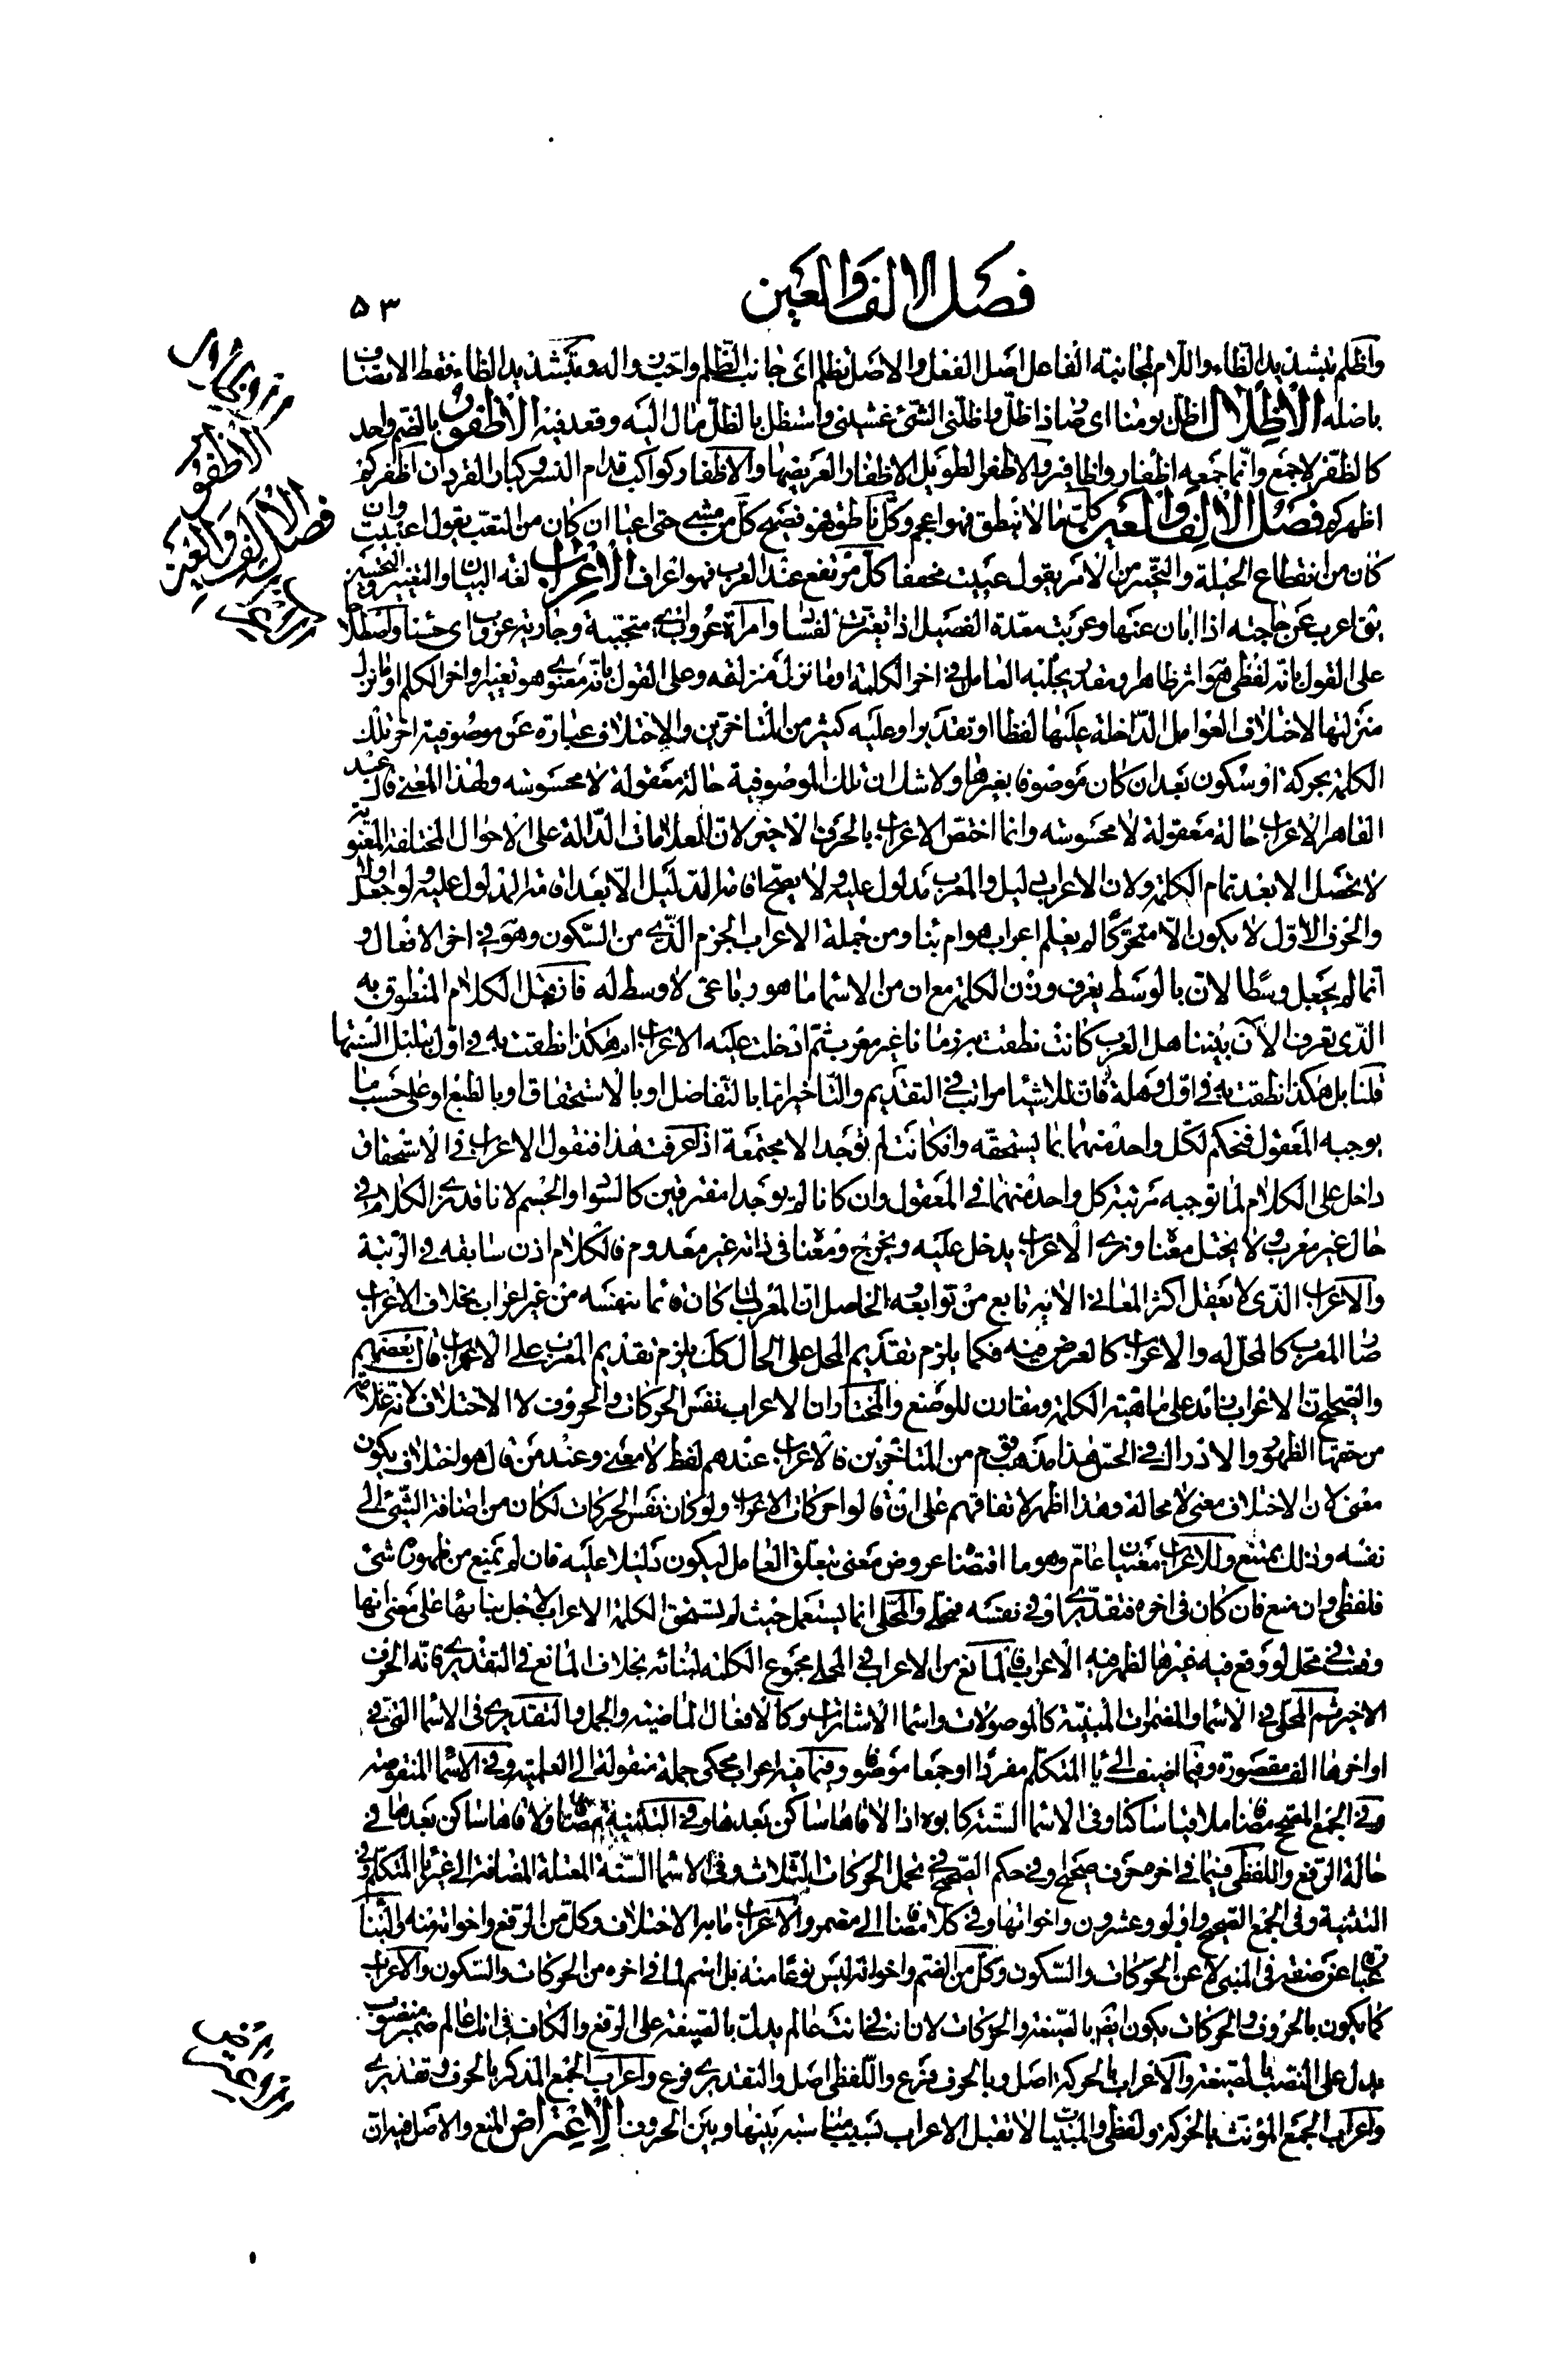 فصل الالف والعين
٥٣
واظلم بتشديد الظاء واللام لمجانبة الفاعل اصل الفعل والاصل تظلم اى جانب الظلم واحترز واله وبتشديد الظاء فقط الاتصاف
باصله الاظلال اظل يومنا اى صار ذا ظل واظلنى الشئ غشينى واستظل بالظل مال اليه وقعد فيه الاظفور بالضم واحد
كالظفر لا جمع وانما جمعه اظفار واظافير والاظفر الطويل الاظفار العريضها والاظفار كواكب قدام النسر وكبار القردان اظفركم
اظهركم فصل الالف والعين كل ما لا ينطق فهو اعجم وكل ناطق فهو فصيح كل من مشى حتى اعيا ان كان من التعب يقول اعييت وان
كان من انقطاع الحيلة والتحير من الامر يقول عييت مخففا كل مرتفع عند العرب فهو اعراف الاعراب لغة البيان والتغيير والتحسين
يق اعرب عن حاجته اذا ابان عنها وعربت معدة الفصيل اذا تغيرت لفساد وامراة عروب اى متحببة وجارية عروب اى حسنا واصطلاحا
على القول بانه لفظى هو اثر ظاهر او مقدر يجلبه العامل فى اخر الكلمة او ما نزل منزلته وعلى القول بانه معنوى هو تغيير اواخر الكلم او ما نزل
منزلتها لاختلاف العوامل الداخلة عليها لفظا او تقديرا وعليه كثير من المتاخرين والاختلاف عبارة عن موصوفية اخر تلك
الكلمة بحركة او سكون بعد ان كان موصوفا بغيرها ولا شك ان تلك الموصوفية حالة معقولة لا محسوسه ولهذا المعنى قال عبد
القاهر الاعراب حالة معقولة لا محسوسة وانما اختص الاعراب بالحرف الاخير لان العلامات الدالة على الاحوال المختلفة المعنوية
لا تحصل الا بعد تمام الكلمة ولان الاعراب دليل والمعرب مدلول عليه ولا يصح اقامة الدليل الا بعد اقامة المدلول عليه ولو جعل اولا
والحرف الاول لا يكون الا متحركا لم يعلم اعراب هو ام بنا ومن جملة الاعراب الجزم الذى من السكون وهو فى اخر الافعال و
انما لم يجعل وسطا لان بالوسط يعرف وزن الكلمة مع ان من الاسما ما هو رباعى لا وسط له فان قيل الكلام المنطوق به
الذى تعرف الان بيننا هل العرب كانت نطقت به زمانا غير معرب ثم ادخلت عليه الاعراب ام هكذا نطقت به فى اول تبلبل السنتها
قلنا بل هكذا نطقت به فى اول وهلة فان للاشيا مراتب فى التقديم والتاخير اما بالتفاضل او بالاستحقاق او بالطبع او على حسب ما
يوجبه المعقول فنحكم لكل واحد منهما بما يستحقه وان كانت لم توجد الا مجتمعة اذا عرفت هذا فنقول الاعراب فى الاستحقاق
داخل على الكلام لما توجبه مرتبة كل واحد منهما فى المعقول وان كانا لم يوجدا مفترقين كالسواد والجسم لانا قد نرى الكلام فى
حال غير معرب ولا يختل معنا ونرى الاعراب يدخل عليه ويخرج ومعنا فى ذاته غير معدوم فالكلام اذن سابقه فى الرتبة
والاعراب الذى لا يعقل اكثر المعانى الا به تابع من توابعه الحاصل ان المعرب لما كان قائما بنفسه من غير اعراب بخلاف الاعراب
صار المعرب كالمحل له والاعراب كالعرض فيه فكما يلزم تقديم المحل على الحال كك يلزم تقديم المعرب على الاعراب قال بعضهم
والصحيح ان الاعراب زائد على ماهية الكلمة ومقارن للوضع والمختار ان الاعراب نفس الحركات والحروف لا الاختلاف لانه علامة
من حقها الظهور والادراك فى الحس هذا مذهب قوم من المتاخرين فالاعراب عندهم لفظ لا معنى وعند من قال هو اختلاف يكون
معنى لان الاختلاف معنى لا محالة وهذا اظهر لاتفاقهم على ان قالوا حركات الاعراب ولو كان نفس الحركات لكان من اضافة الشئ الى
نفسه وذلك ممتنع وللاعراب معنيان عام وهو ما اقتضا عروض معنى بتعلق العامل ليكون دليلا عليه فان لم يمنع من ظهوره شئ
فلفظى وان منع فان كان فى اخره فتقديرى او فى نفسه فمحلى والمحلى انما يستعمل حيث لم يستحق الكلمة الاعراب لاجل بنائها على معنى انها
وقعت فى محل لو وقع فيه غيرها لظهر فيه الاعراب فالمانع من الاعراب فى المحلى مجموع الكلمة لبنائه بخلاف المانع فى التقديرى فانه الحرف
الاخير ثم المحلى فى الاسما والمضمرات المبنية كالموصولات واسما الاشارات وكالافعال الماضية والجمل والتقديرى فى الاسما التى فى
اواخرها الف مقصورة وفيما اضيف الى يا المتكلم مفردا او جمعا موصوفا وفيما فيه اعراب محكى جملة منقولة الى العلمية وفى الاسما المنقوصة
وفى الجمع المصحح مضافا ملاقيا ساكنا وفى الاسما الستة كابوه اذا لاقاها ساكن بعدها وفى التثنية مضافا ولاقاها ساكن بعدها فى
حالة الرفع واللفظى فيما فى اخره حرف صحيح او فى حكم الصحيح فى تحمل الحركات الثلاث وفى الاسما الستة المعتلة المضافة الى غير يا المتكلم وفى
التثنية وفى الجمع الصحيح واولو وعشرون واخواتها وفى كلا مضافا الى مضمر والاعراب ما به الاختلاف وكل من الرفع واخواته منه والبنا
عبارة عن صفة فى المبنى لا عن الحركات والسكون وكل من الضم واخواته ليس نوعا منه بل اسم لما فى اخره من الحركات والسكون والاعراب
كما يكون بالحروف والحركات يكون ايضا بالصيغة والحركات لان انت فى انت عالم يدل بالصيغة على الرفع والكاف فى انك عالم ضمير منصوب
يدل على النصب بالصيغة والاعراب بالحركة اصل وبالحرف فرع واللفظى اصل والتقديرى فرع واعراب الجمع المذكر بالحرف وتقديرى
واعراب الجمع المؤنث بالحركة ولفظى والمبنيات لا تقبل الاعراب بسبب مناسبة بينها وبين الحروف الاعتراض المنع والاصل فيه ان
الاظفور
فصل الالف والعين